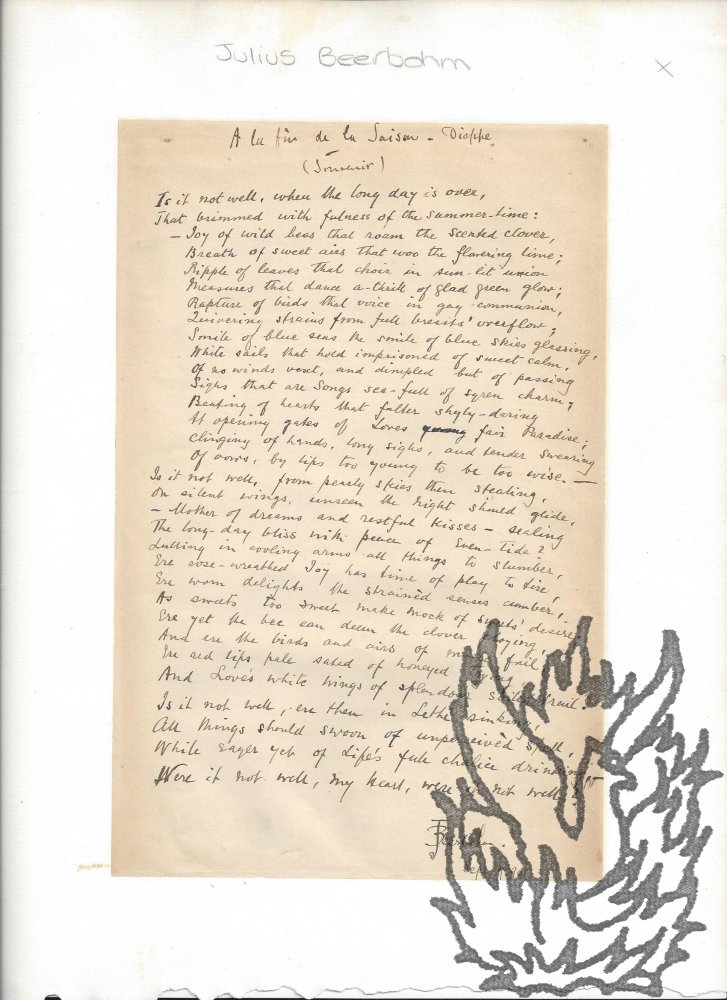 Julius Beerbohm
X
A la fin de la Saison - Dieppe
(Souvenir)
Is it not well, when the long day is over,
That brimmed with fulness of the summer-time:
- Joy of wild bees that roam the scented clover,
Breath of sweet airs that woo the flowering lime;
Ripple of leaves that choir in sun-lit union
Measures that dance a-thrill of glad green glow;
Rapture of birds that voice in gay communion,
Quivering strains from full breasts' overflow;
Smile of blue seas the smile of blue skies glassing,
White sails that hold imprisoned of sweet calm,
Of no winds vext, and dimpled but of passing
Sighs that are Songs sea-full of syren charm;
Beating of hearts that falter shyly-daring
At opening gates of Loves fair Paradise;
Clinging of hands, long sighs, and tender swearing
Of vows, by lips too young to be too wise. —
Is it not well, from pearly skies then stealing,
On silent wings, unseen the Night should glide,
- Mother of dreams and restful kisses - sealing
The long-day bliss with peace of Even-Tide?
Lulling in cooling arms all things to slumber,
Ere rose-wreathed Joy has time of play to tire,
Ere worn delights the strained senses cumber,
As sweets too sweet make mock of sweets' desire;
Ere yet the bee can deem the clover cloying,
And ere the birds and airs of fail,
Ere red lips pale sated of honeyed
And Love's white wings of splendour trail?
Is it not well, ere then in Lethe sinking,
All things should swoon of unperceived spell,
While Eager yet of Life's full chalice drinking
Were it not well, my heart, were it not well?